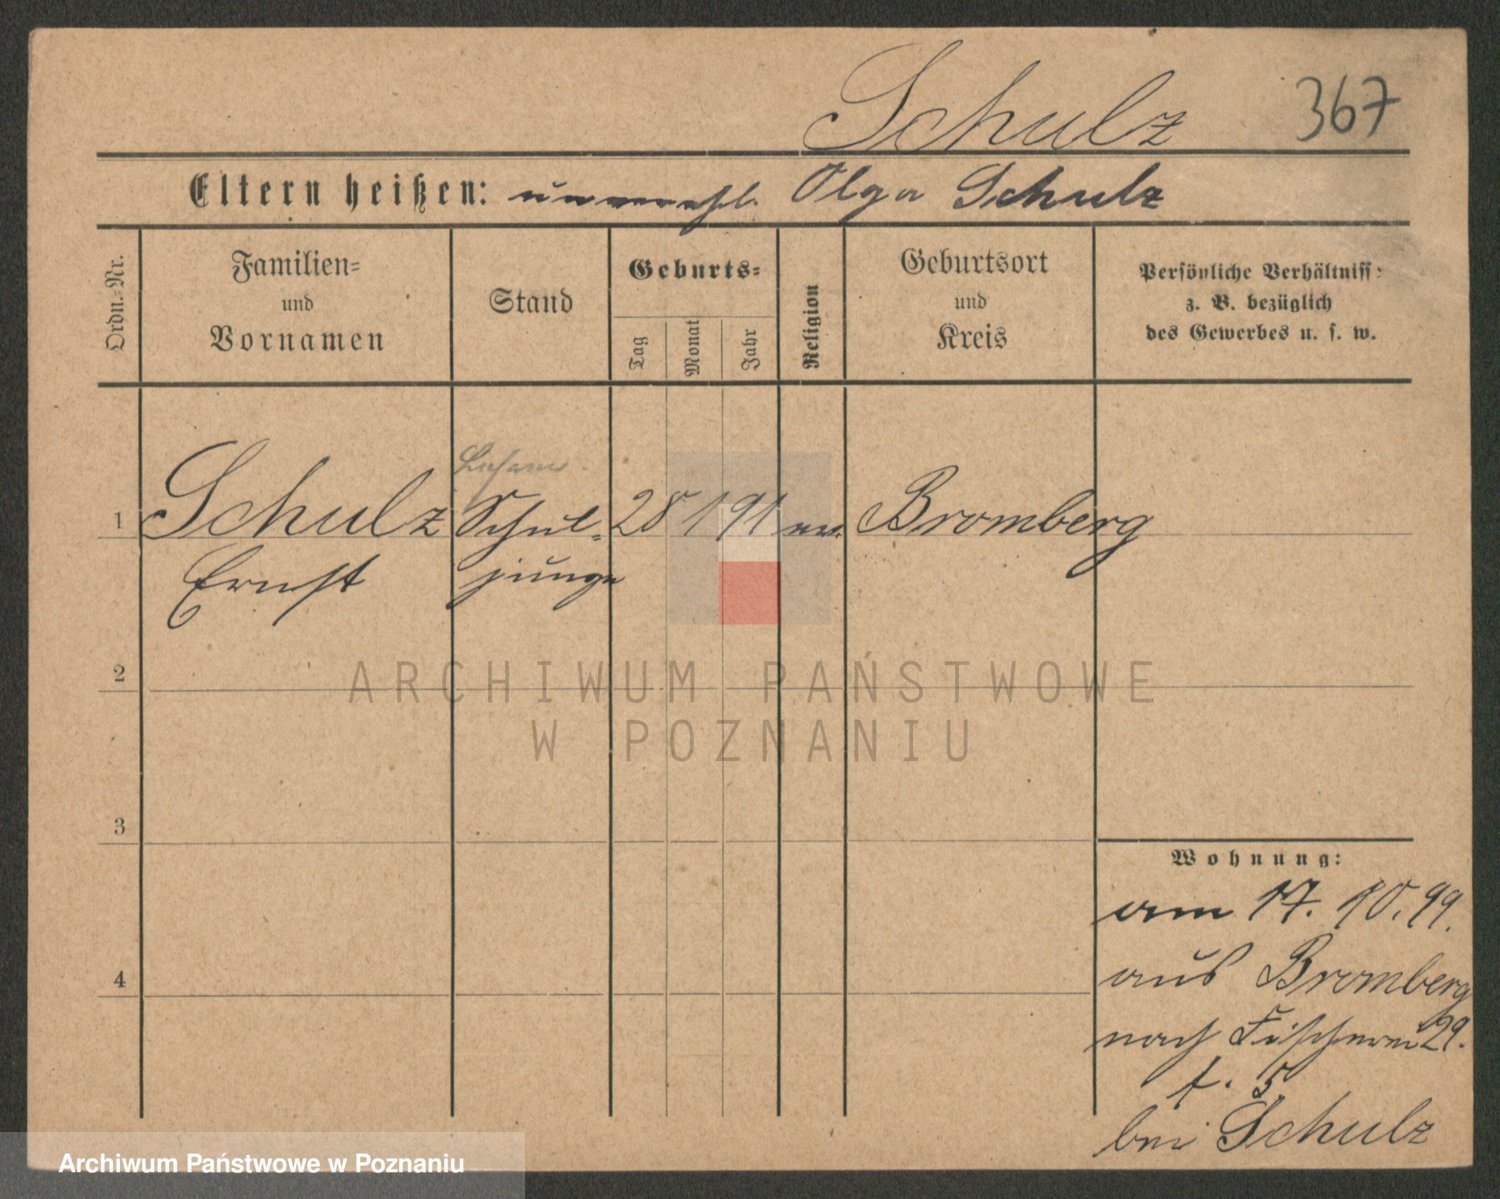 Schulz 367
Eltern heißen: unverehl. Olga Schulz
Ordn.-Nr.
Familien-
und
Vornamen
Stand
Geburts-
Tag
Monat
Jahr
Religion
Geburtsort
und
Kreis
Persönliche Verhältniss:
z. B. bezüglich
des Gewerbes u. s. w.
1 Schulz Schul- 28 1 91 ev. Bromberg
Ernst junge
2
ARCHIWUM PAŃSTWOWE
W POZNANIU
3
Wohnung:
am 17. 10. 99.
aus Bromberg
4
nach Fischerei 29.
bei Schulz
Archiwum Państwowe w Poznaniu